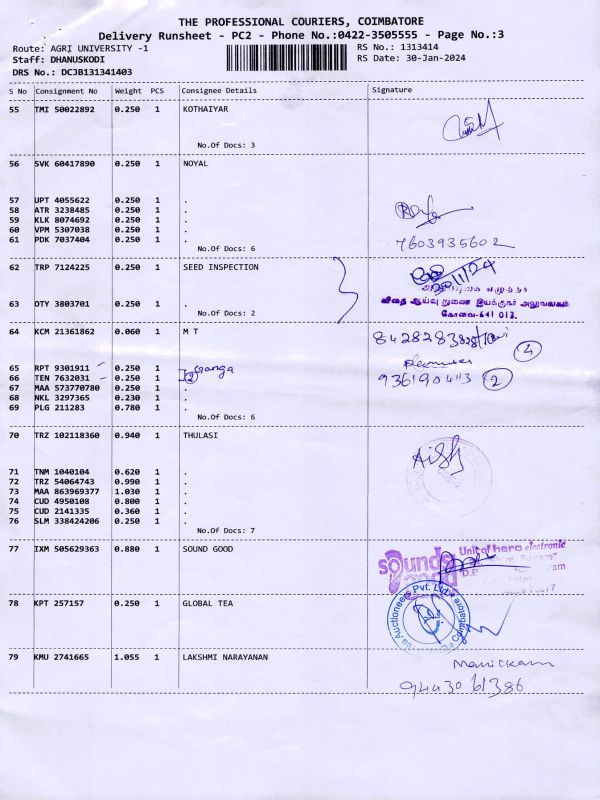 THE PROFESSIONAL COURIERS, COIMBATORE
Delivery Runsheet - PC2 - Phone No.:0422-3505555 - Page No.:3
Route: AGRI UNIVERSITY -1 RS No.: 1313414
Staff: DHANUSKODI RS Date: 30-Jan-2024
DRS No.: DCJB131341403
S No Consignment No Weight PCS Consignee Details Signature
55 TMI 50022892 0.250 1 KOTHAIYAR
No.Of Docs: 3
56 SVK 60417890 0.250 1 NOYAL
57 UPT 4055622 0.250 1 .
58 ATR 3238485 0.250 1 .
59 KLK 8074692 0.250 1 .
60 VPM 5307038 0.250 1 .
61 PDK 7037404 0.250 1 .
No.Of Docs: 6 7603935602
62 TRP 7124225 0.250 1 SEED INSPECTION
விதை ஆய்வு துணை இயக்குநர் அலுவலகம்
63 DTY 3803701 0.250 1 .
No.Of Docs: 2 கோவை-641 013.
64 KCM 21361862 0.060 1 M T
4
65 RPT 9301911 0.250 1 . Ganga
66 TEN 7632031 0.250 1 . 2 9361904113 2
67 MAA 573770780 0.250 1 .
68 NKL 3297365 0.230 1 .
69 PLG 211283 0.780 1 .
No.Of Docs: 6
70 TRZ 102118360 0.940 1 THULASI
Aish
71 TNM 1040104 0.620 1 .
72 TRZ 54064743 0.990 1 .
73 MAA 863969377 1.030 1 .
74 CUD 4950108 0.800 1 .
75 CUD 2141335 0.360 1 .
76 SLM 338424206 0.250 1 .
No.Of Docs: 7
77 IXM 505629363 0.880 1 SOUND GOOD
Unit of hero electronic
sounds good
78 KPT 257157 0.250 1 GLOBAL TEA
Auctioneers Pvt. Ltd. Coimbatore
79 KMU 2741665 1.055 1 LAKSHMI NARAYANAN
Manickam
9443061386